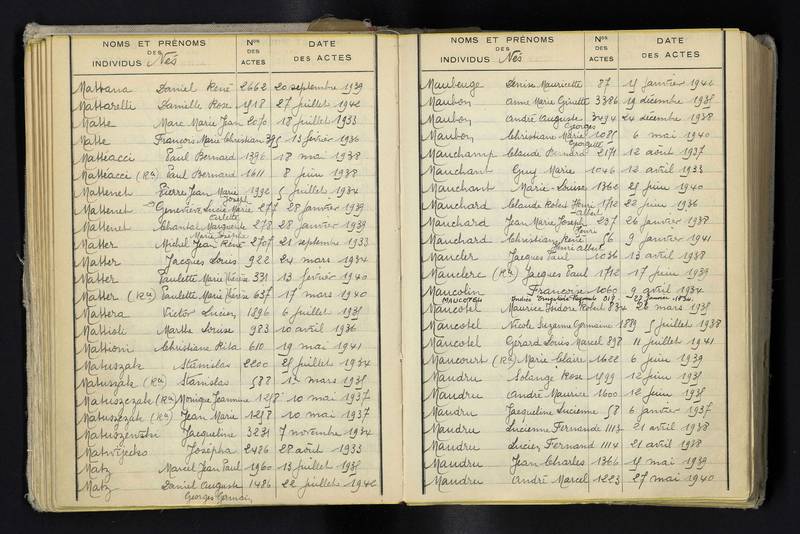 NOMS ET PRÉNOMS
DES
INDIVIDUS Nés
Nos
DES
ACTES
DATE
DES ACTES
Mattana Daniel René 2662 20 septembre 1939
Mattarelli Danielle Rose 27 juillet
Matte Marc Marie Jean 2070 18 juillet 1933
Matte François Marie Christian 395 13 février 1936
Mattéacci Paul Bernard 1396 18 mai 1938
Mattéacci (Rn) Paul Bernard 1611 8 juin 1938
Mattenet Pierre Jean Marie 1992 5 juillet 1934
Joseph
Mattenet Geneviève Lucie Marie 277 28 janvier 1939
Carlette
Mattenet Chantal Marguerite 278 28 janvier 1939
Marie Josèphe
Matter Michel Jean René 2707 21 septembre 1933
Matter Jacques Louis 922 24 mars 1934
Matter Paulette Marie Thérèse 331 13 février 1940
Matter (Rn) Paulette Marie Thérèse 637 17 mars 1940
Mattera Victor Lucien 1896 6 juillet
Mattioli Marthe Louise 983 10 avril 1936
Mattioni Christiane Rita 610 19 mai 1941
Matuszak Stanislas 2200 juillet 1934
Matuszak (Rn) Stanislas 588 mars
Matuszczak (Rn) Monique Jeannine 10 mai 1937
Matuszczak (Rn) Jean Marie 10 mai 1937
Jacqueline 3231 7 novembre 1934
Josépha 2486 28 août 1933
Matz Marcel Jean Paul 1960 13 juillet
Matz Daniel Auguste 1486 22 juillet
Georges Germain
NOMS ET PRÉNOMS
DES
INDIVIDUS Nés
Nos
DES
ACTES
DATE
DES ACTES
Maubeuge Denise Mauricette 87 janvier
Maubon Anne Marie Ginette 3386 19 décembre
Maubon André Auguste 3494 24 décembre 1938
Georges
Maubon Christiane Marie 1085 6 mai 1940
Georgette
Mauchamp Claude Bernard 2171 12 août 1937
Mauchant Guy Marie 1046 12 avril 1933
Mauchant Marie-Louise 1362 juin 1940
Mauchard Claude Robert Henri 1712 22 juin 1936
Albert
Mauchard Jean Marie Joseph 237 26 janvier 1938
Henri
Mauchard Christian René 56 9 janvier 1941
Henri Albert
Maucler Jacques Paul 1036 13 avril 1938
Mauclerc (Rn) Jacques Paul 1712 17 juin 1939
Maucolin Françoise 1060 9 avril 1934
MAUCOTEL
Maucotel Maurice Isidore Robert 834 28 mars
Maucotel Nicole Suzanne Germaine 1889 5 juillet 1938
Maucotel Gérard Louis Marcel 898 11 juillet 1941
Maucourt (Rn) Marie Claire 1622 6 juin 1939
Maudru Solange Rose 1599 12 juin
Maudru André Maurice 1600 12 juin
Maudru Jacqueline Lucienne 58 6 janvier 1937
Maudru Lucienne Fernande 1113 21 avril 1938
Maudru Lucien Fernand 1114 21 avril 1938
Maudru Jean-Charles 1366 mai 1939
Maudru André Marcel 1223 27 mai 1940